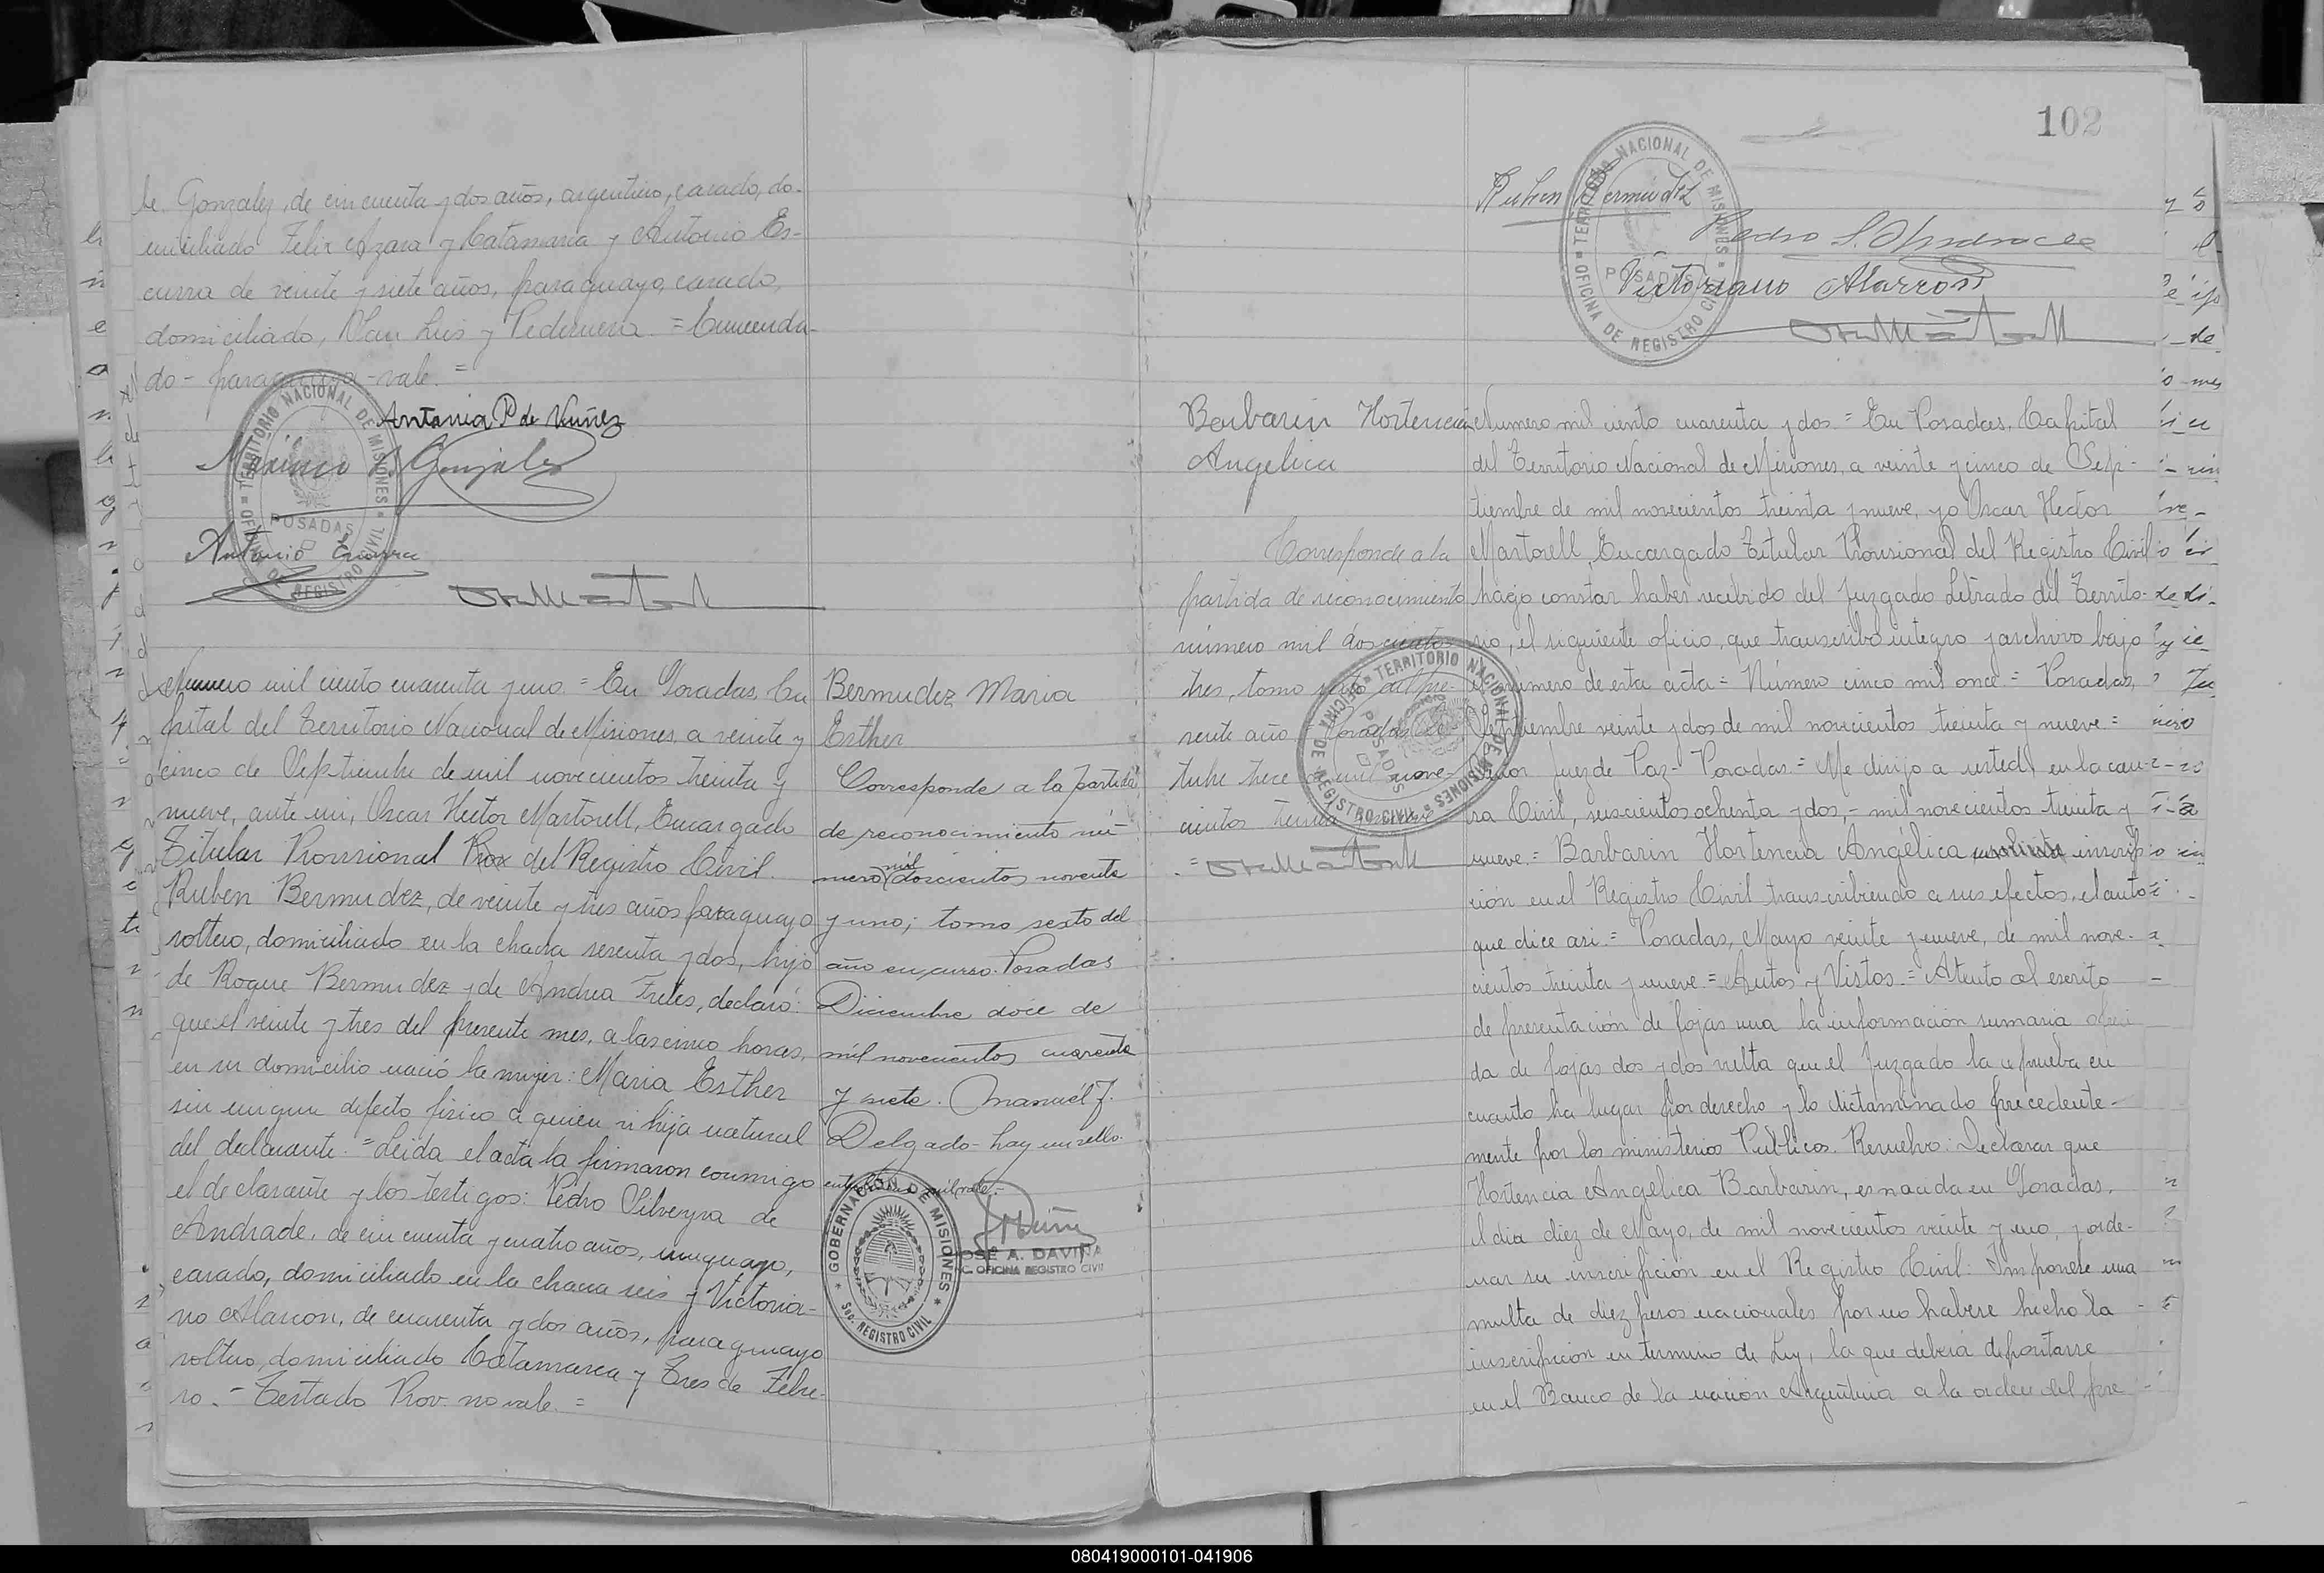 te Gonzalez, de cincuenta y dos años, argentino, casado, do-
miciliado Felix Azara y Catamarca y Antonio Es-
curra de veinte y siete años, paraguayo, casado,
domiciliado, San Luis y Pedernera. = Enmenda-
do - paraguayo - vale. =
Antonia P de Nuñez
Maximo Gonzalez
Antonio Escurra
TERRITORIO NACIONAL DE MISIONES
POSADAS
OFICINA DE REGISTRO CIVIL
Numero mil ciento cuarenta y uno = En Posadas, Ca
pital del Territorio Nacional de Misiones, a veinte y
cinco de Septiembre de mil novecientos treinta y
nueve, ante mi, Oscar Hector Martorell, Encargado
Titular Provisional Prov del Registro Civil.
Ruben Bermudez, de veinte y tres años paraguayo
soltero, domiciliado en la chacra sesenta y dos, hijo
de Roque Bermudez y de Andrea Fretes, declaró:
que el veinte y tres del presente mes, a las cinco horas,
en su domicilio nació la mujer: Maria Esther
sin ningun defecto fisico a quien hija natural
del declarante. = Leida el acta la firmaron conmigo
el declarante y los testigos: Pedro Silveyra de
Andrade, de cincuenta y cuatro años, uruguayo,
casado, domiciliado en la chacra seis y Victoria-
no Alarcon, de cuarenta y dos años, paraguayo
soltero, domiciliado Catamarca y Tres de Febre-
ro. - Testado Prov. no vale. =
Bermudez Maria
Esther
Corresponde a la partida
de reconocimiento nú-
mero mil doscientos noventa
y uno; tomo sexto del
año en curso. Posadas
Diciembre doce de
mil novecientos cuarenta
y siete. Manuél J.
Delgado - hay un sello.
GOBERNACIÓN DE MISIONES
Sec. REGISTRO CIVIL
JOSÉ A. DAVIÑA
OFICINA REGISTRO CIVIL
102
Ruben Bermudez
Pedro S. Andrade
Victoriano Alarcon
TERRITORIO NACIONAL DE MISIONES
POSADAS
OFICINA DE REGISTRO CIVIL
Barbarin Hortencia
Angelica
Corresponde a la
partida de reconocimiento
número mil doscientos
tres, tomo sexto del pre-
sente año Posadas Oc-
tubre trece de mil nove-
cientos treinta y nueve
TERRITORIO NACIONAL DE MISIONES
POSADAS
OFICINA DE REGISTRO CIVIL
Numero mil ciento cuarenta y dos = En Posadas, Capital
del Territorio Nacional de Misiones, a veinte y cinco de Sep-
tiembre de mil novecientos treinta y nueve, yo Oscar Hector
Martorell, Encargado Titular Provisional del Registro Civil
hago constar haber recibido del Juzgado Letrado del Territo-
rio, el siguiente oficio, que transcribo integro y archivo bajo
el número de esta acta = Número cinco mil once = Posadas,
Septiembre veinte y dos de mil novecientos treinta y nueve =
Señor Juez de Paz - Posadas = Me dirijo a usted, en la cau-
sa Civil, seiscientos ochenta y dos, - mil novecientos treinta y
nueve = Barbarin Hortencia Angélica inscrip
ción en el Registro Civil transcribiendo a sus efectos, el auto
que dice asi = Posadas, Mayo veinte y nueve, de mil nove-
cientos treinta y nueve = Autos y Vistos = Atento al escrito
de presentación de fojas una la información sumaria ofreci
da de fojas dos y dos vuelta que el Juzgado la aprueba en
cuanto ha lugar por derecho y lo dictaminado precedente-
mente por los ministerios Publicos. Resuelvo: Declarar que
Hortencia Angélica Barbarin, es nacida en Posadas,
el dia diez de Mayo, de mil novecientos veinte y uno, y orde-
nar su inscripción en el Registro Civil: Imponese una
multa de diez pesos nacionales por no haberse hecho la
inscripción en termino de Ley, la que deberá depositarse
en el Banco de la nación Argentina a la orden del pre
080419000101-041906